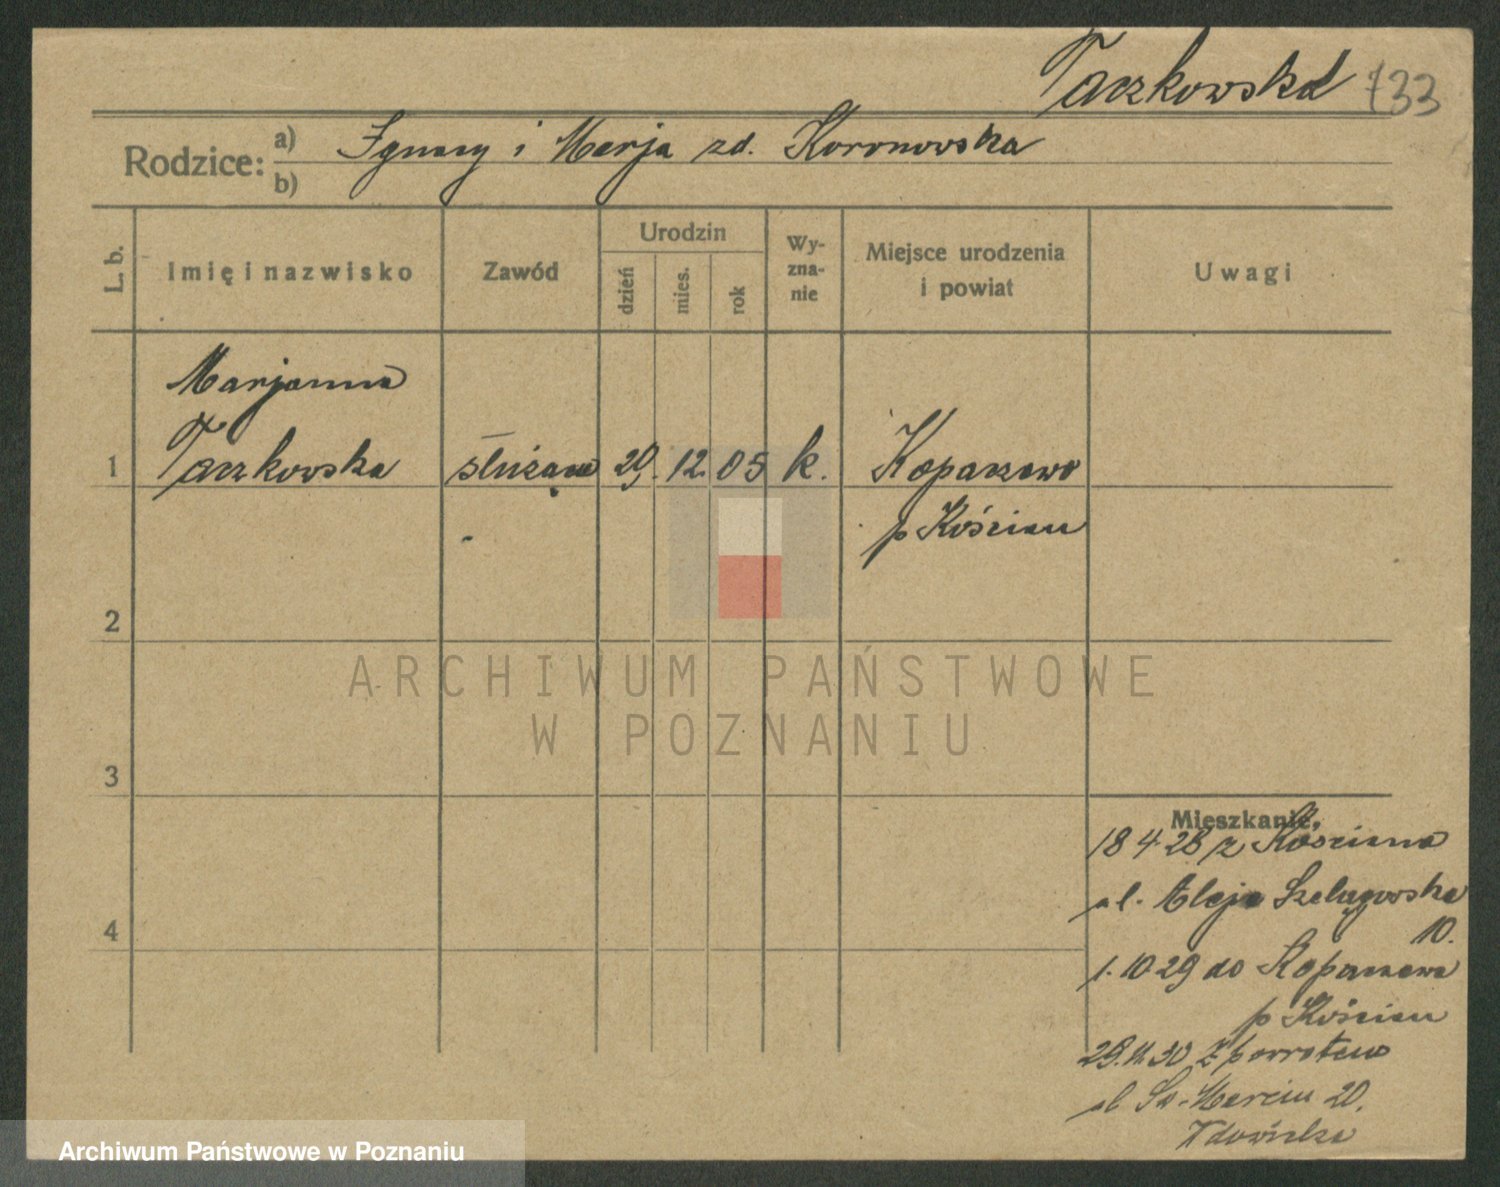 Taczkowska 733
Rodzice: a) b) Ignacy i Marja zd. Koronowska
L. b. Imię i nazwisko Zawód Urodzin dzień mies. rok Wy-zna-nie Miejsce urodzenia i powiat Uwagi
Marjanna
1 Taczkowska służąca 29. 12. 05 k. Kopaszewo
p Kościan
2
ARCHIWUM PAŃSTWOWE
W POZNANIU
3
Mieszkanie,
18 4 28 z Kościana
ul. Aleja Szelągowska
10.
4
1. 10 29 do Kopaszewa
p Kościan
29. 11. 30 z powrotem
ul Św. Marcin 20.
Archiwum Państwowe w Poznaniu